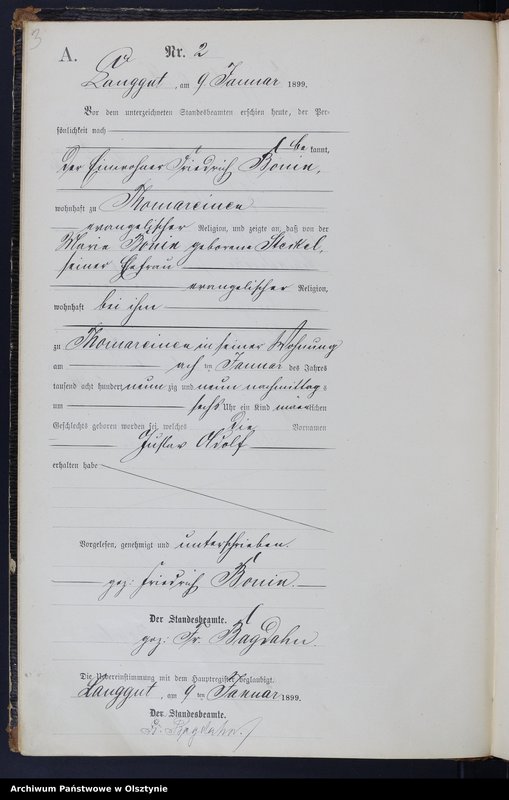 3
A.
Nr. 2
Langgut, am 9 Januar 1899.
Vor dem unterzeichneten Standesbeamten erschien heute, der Per-
sönlichkeit nach
be kannt,
der Einwohner Friedrich Bonin,
wohnhaft zu Thomareinen
evangelischer Religion, und zeigte an, daß von der
Marie Bonin geborene
seiner Ehefrau
evangelischer Religion,
wohnhaft bei ihm
zu Thomareinen in seiner Wohnung
am acht ten Januar des Jahres
tausend acht hundert neun zig und neun nachmittags
um sechs Uhr ein Kind männlichen
Geschlechts geboren worden sei, welches die Vornamen
Gustav Adolf
erhalten habe
Vorgelesen, genehmigt und unterschrieben.
gez: Friedrich Bonin.
Der Standesbeamte.
gez: Fr. Bagdahn.
Die Uebereinstimmung mit dem Hauptregister beglaubigt.
Langgut, am 9 ten Januar 1899.
Der Standesbeamte.
Bagdahn.
Archiwum Państwowe w Olsztynie